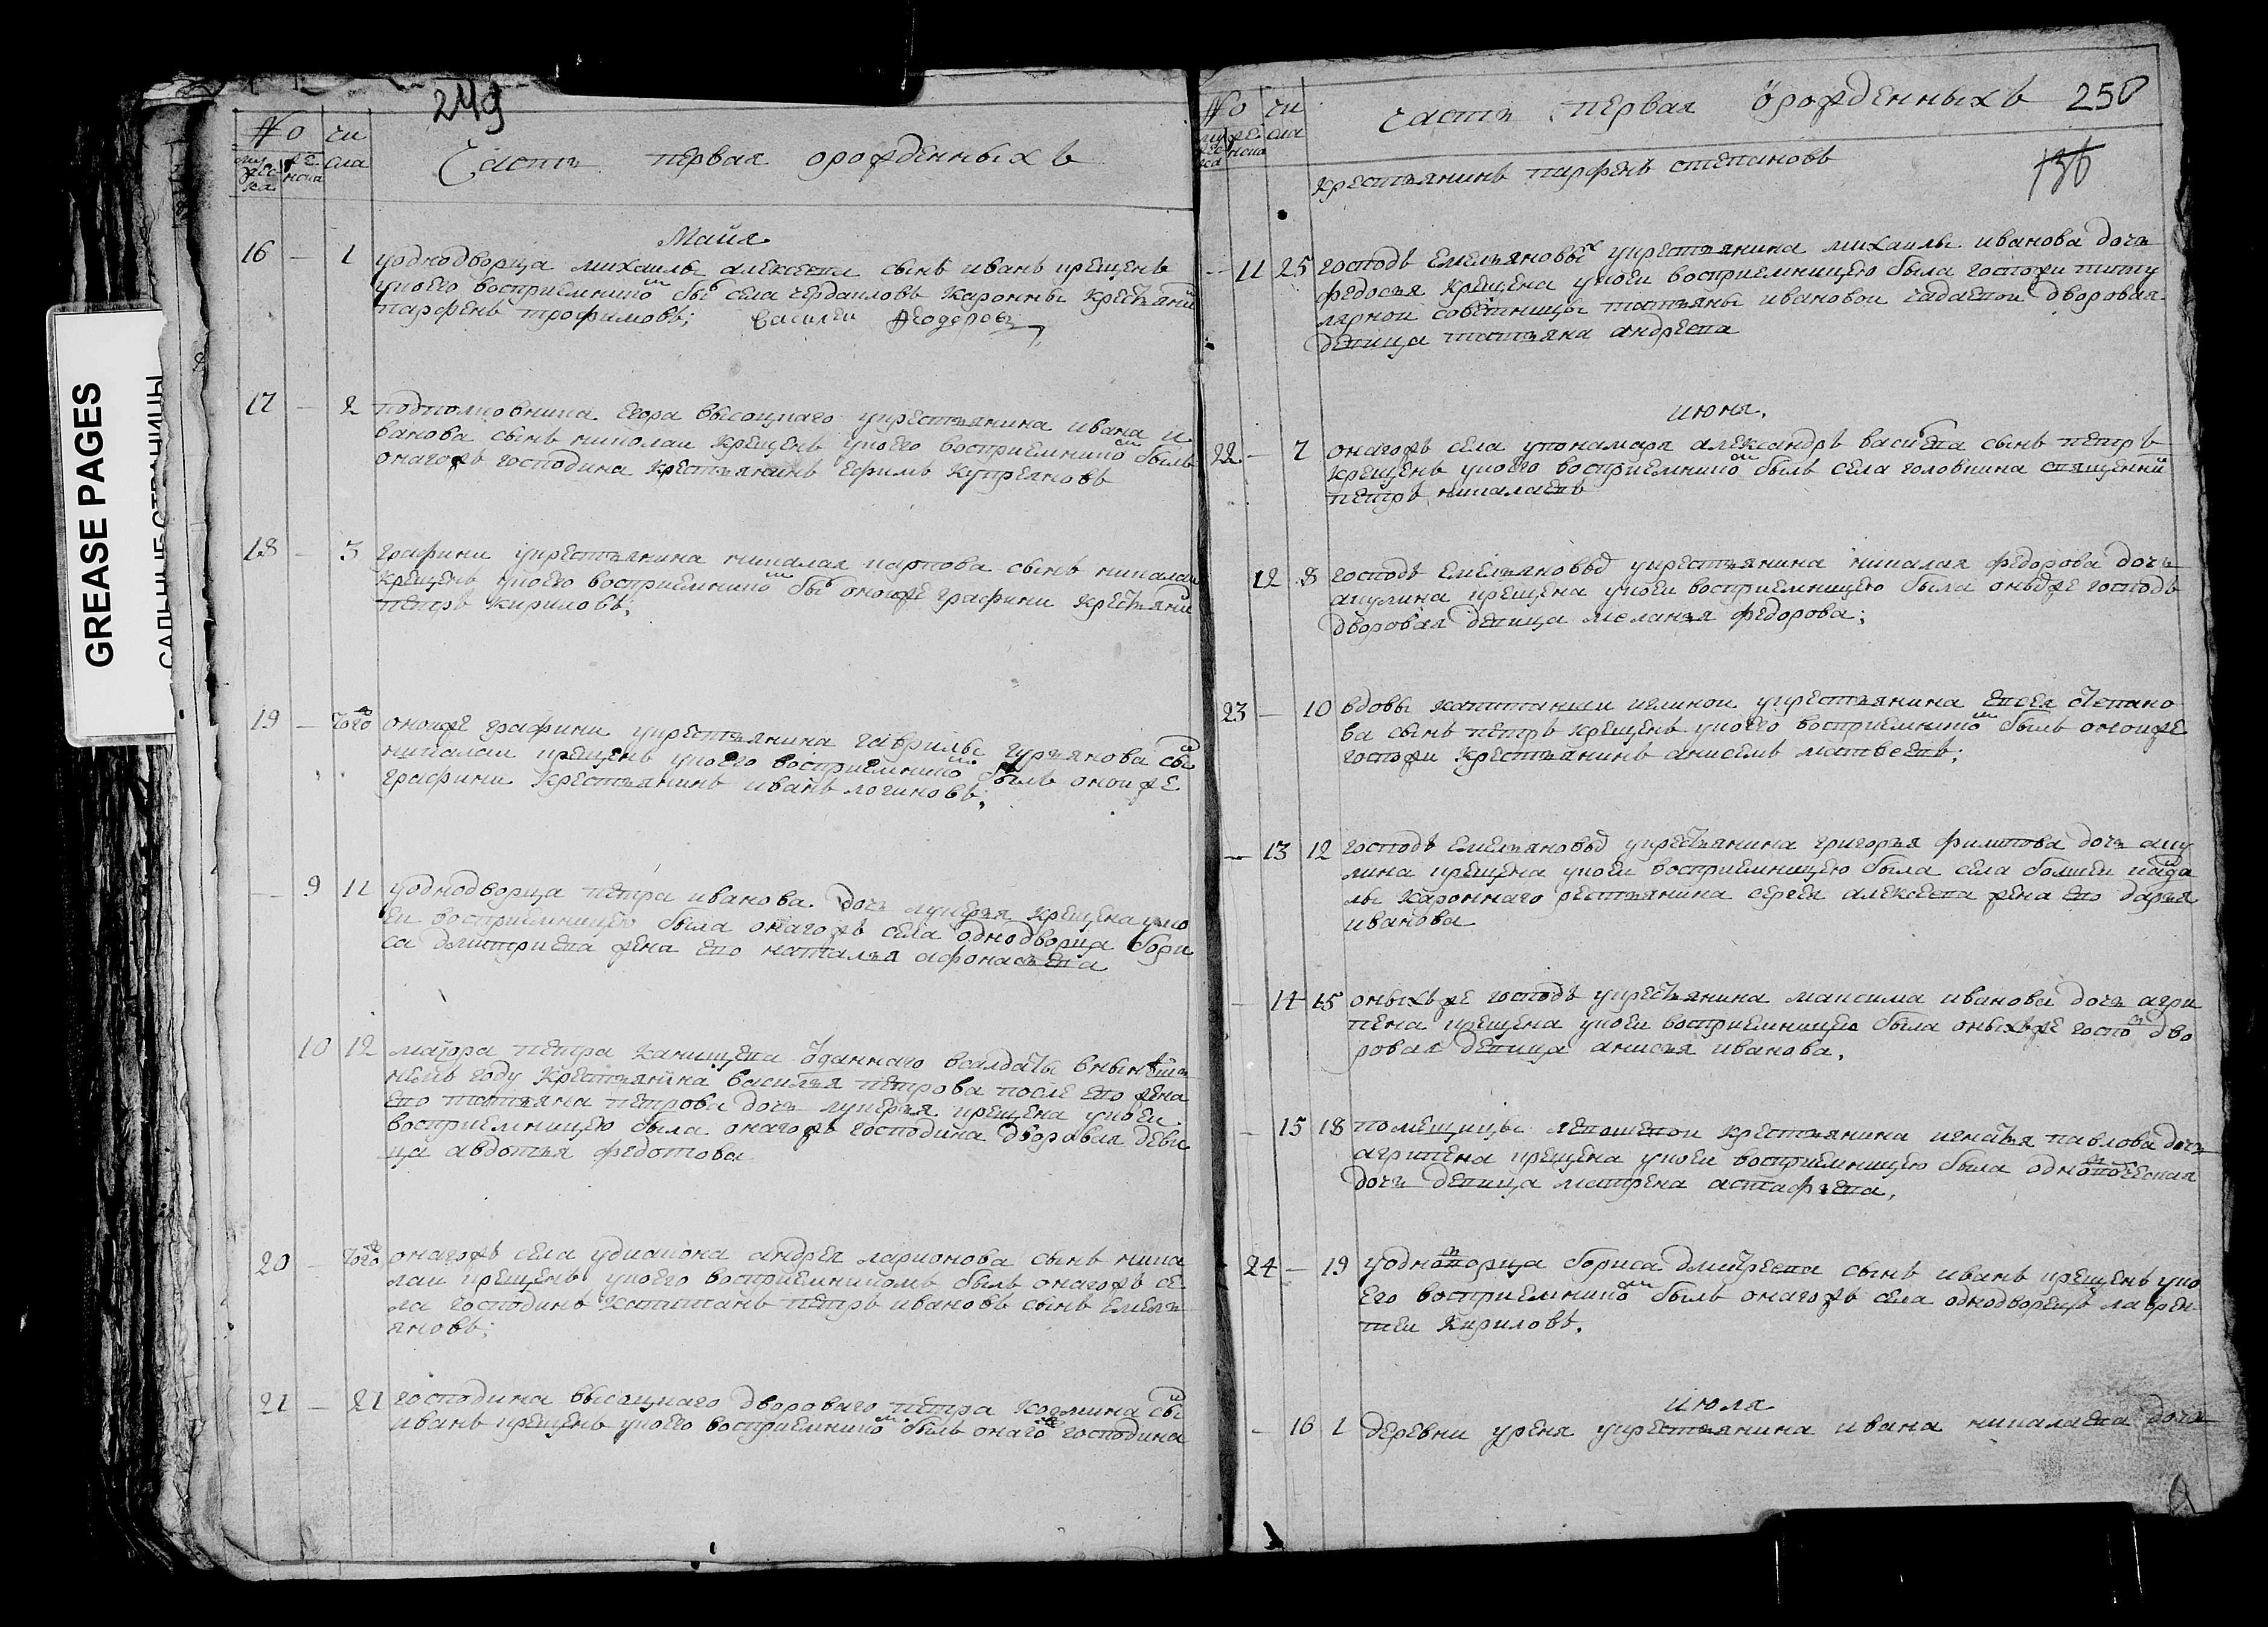 GREASE PAGES
САЛЬНЫЕ СТРАНИЦЫ
249
No чи
му жес ка же нска сла
Часть первая орожденныхъ
Майя
16 — 1 уоднодворца михаилы алексева сынъ иванъ крещенъ
укоего восприемником бы села чердаиловъ каронны крестьяни
парфенъ трофимовъ;
17 — 2 подполковника егора высоцкаго укрестьянина ивана и
ванова сынъ николаи крещенъ укоего восприемником былъ
онагожъ господина крестьянинъ ефимъ купреяновъ
18 — 5 графини укрестьянина николая карпова сынъ николаи
крещенъ укоего восприемником бы оноиже графини крестьяни
петръ кириловъ;
19 — того оноиже графини укрестьянина гаврилы гурьянова сы
николаи крещенъ укоего восприемником былъ оноиже
графини крестьянинъ иванъ логиновъ;
— 9 11 уоднодворца петра иванова дочь лукерья крещена уко
еи восприемницею была онагожъ села однодворца бори
са дмитриева жена ево наталья афонасьева
10 12 маіора петра канищева отданнаго всалдаты внынеш
немъ году крестьянина василья петрова после ево жена
ево татьяна петрова дочь лукерья крещена укоеи
восприемницею была онагожъ господина дворовая деви
ца авдотья федотова
20 — того онагожъ села удиакона андрея ларионова сынъ нико
лаи крещенъ укоего восприемникомъ былъ онагожъ се
ла господинъ капитанъ петръ ивановъ сынъ емель
яновъ;
21 — 21 господина высоцкаго двороваго петра козмина сы
иванъ крещенъ укоего восприемником былъ онагоже господина
No чи
му жес ка же нска сла
часть первая орожденныхъ 250
крестьянинъ парфенъ степановъ
— 11 25 господъ емельяновых укрестьянина михаилы иванова дочь
федосья крещена укоеи восприемницею была госпожи титу
лярной советницы татьяны ивановои чадаевои дворовая
девица татьяна андреева
июня,
22 — 7 онагожъ села упонамаря александръ васильева сынъ петръ
крещенъ укоего восприемником былъ села головкина священни
петръ николаевъ
12 8 господъ емельяновых укрестьянина николая федорова дочь
акулина крещена укоеи восприемницею была оныхже господъ
дворовая девица меланья федорова;
23 — 10 вдовы капитанши укрестьянина евсея степано
ва сынъ петръ крещенъ укоего восприемником былъ оноиже
госпожи крестьянинъ анисимъ матвеевъ;
— 13 12 господъ емельяновых укрестьянина григорья филипова дочь аку
лина крещена укоеи восприемницею была села болшеи канда
лы каронного рестьянина сергея алексеева жена ево дарья
иванова
— 14 15 оныхъже господъ укрестьянина максима иванова дочь агри
пена крещена укоеи восприемницею была оныхъже госпо дво
ровая девица анисья иванова.
— 15 18 помещицы крестьянина игнатья павлова дочь
агрипена крещена укоеи восприемницею была однодворческая
дочь девица матрена астафьева,
24 — 19 уоднодворца бориса дмитреева сынъ иванъ крещенъ уко
его восприемником былъ онагожъ села однодворецъ лаврен
теи кириловъ.
июля
— 16 1 деревни уреня укрестьянина ивана николаева дочь